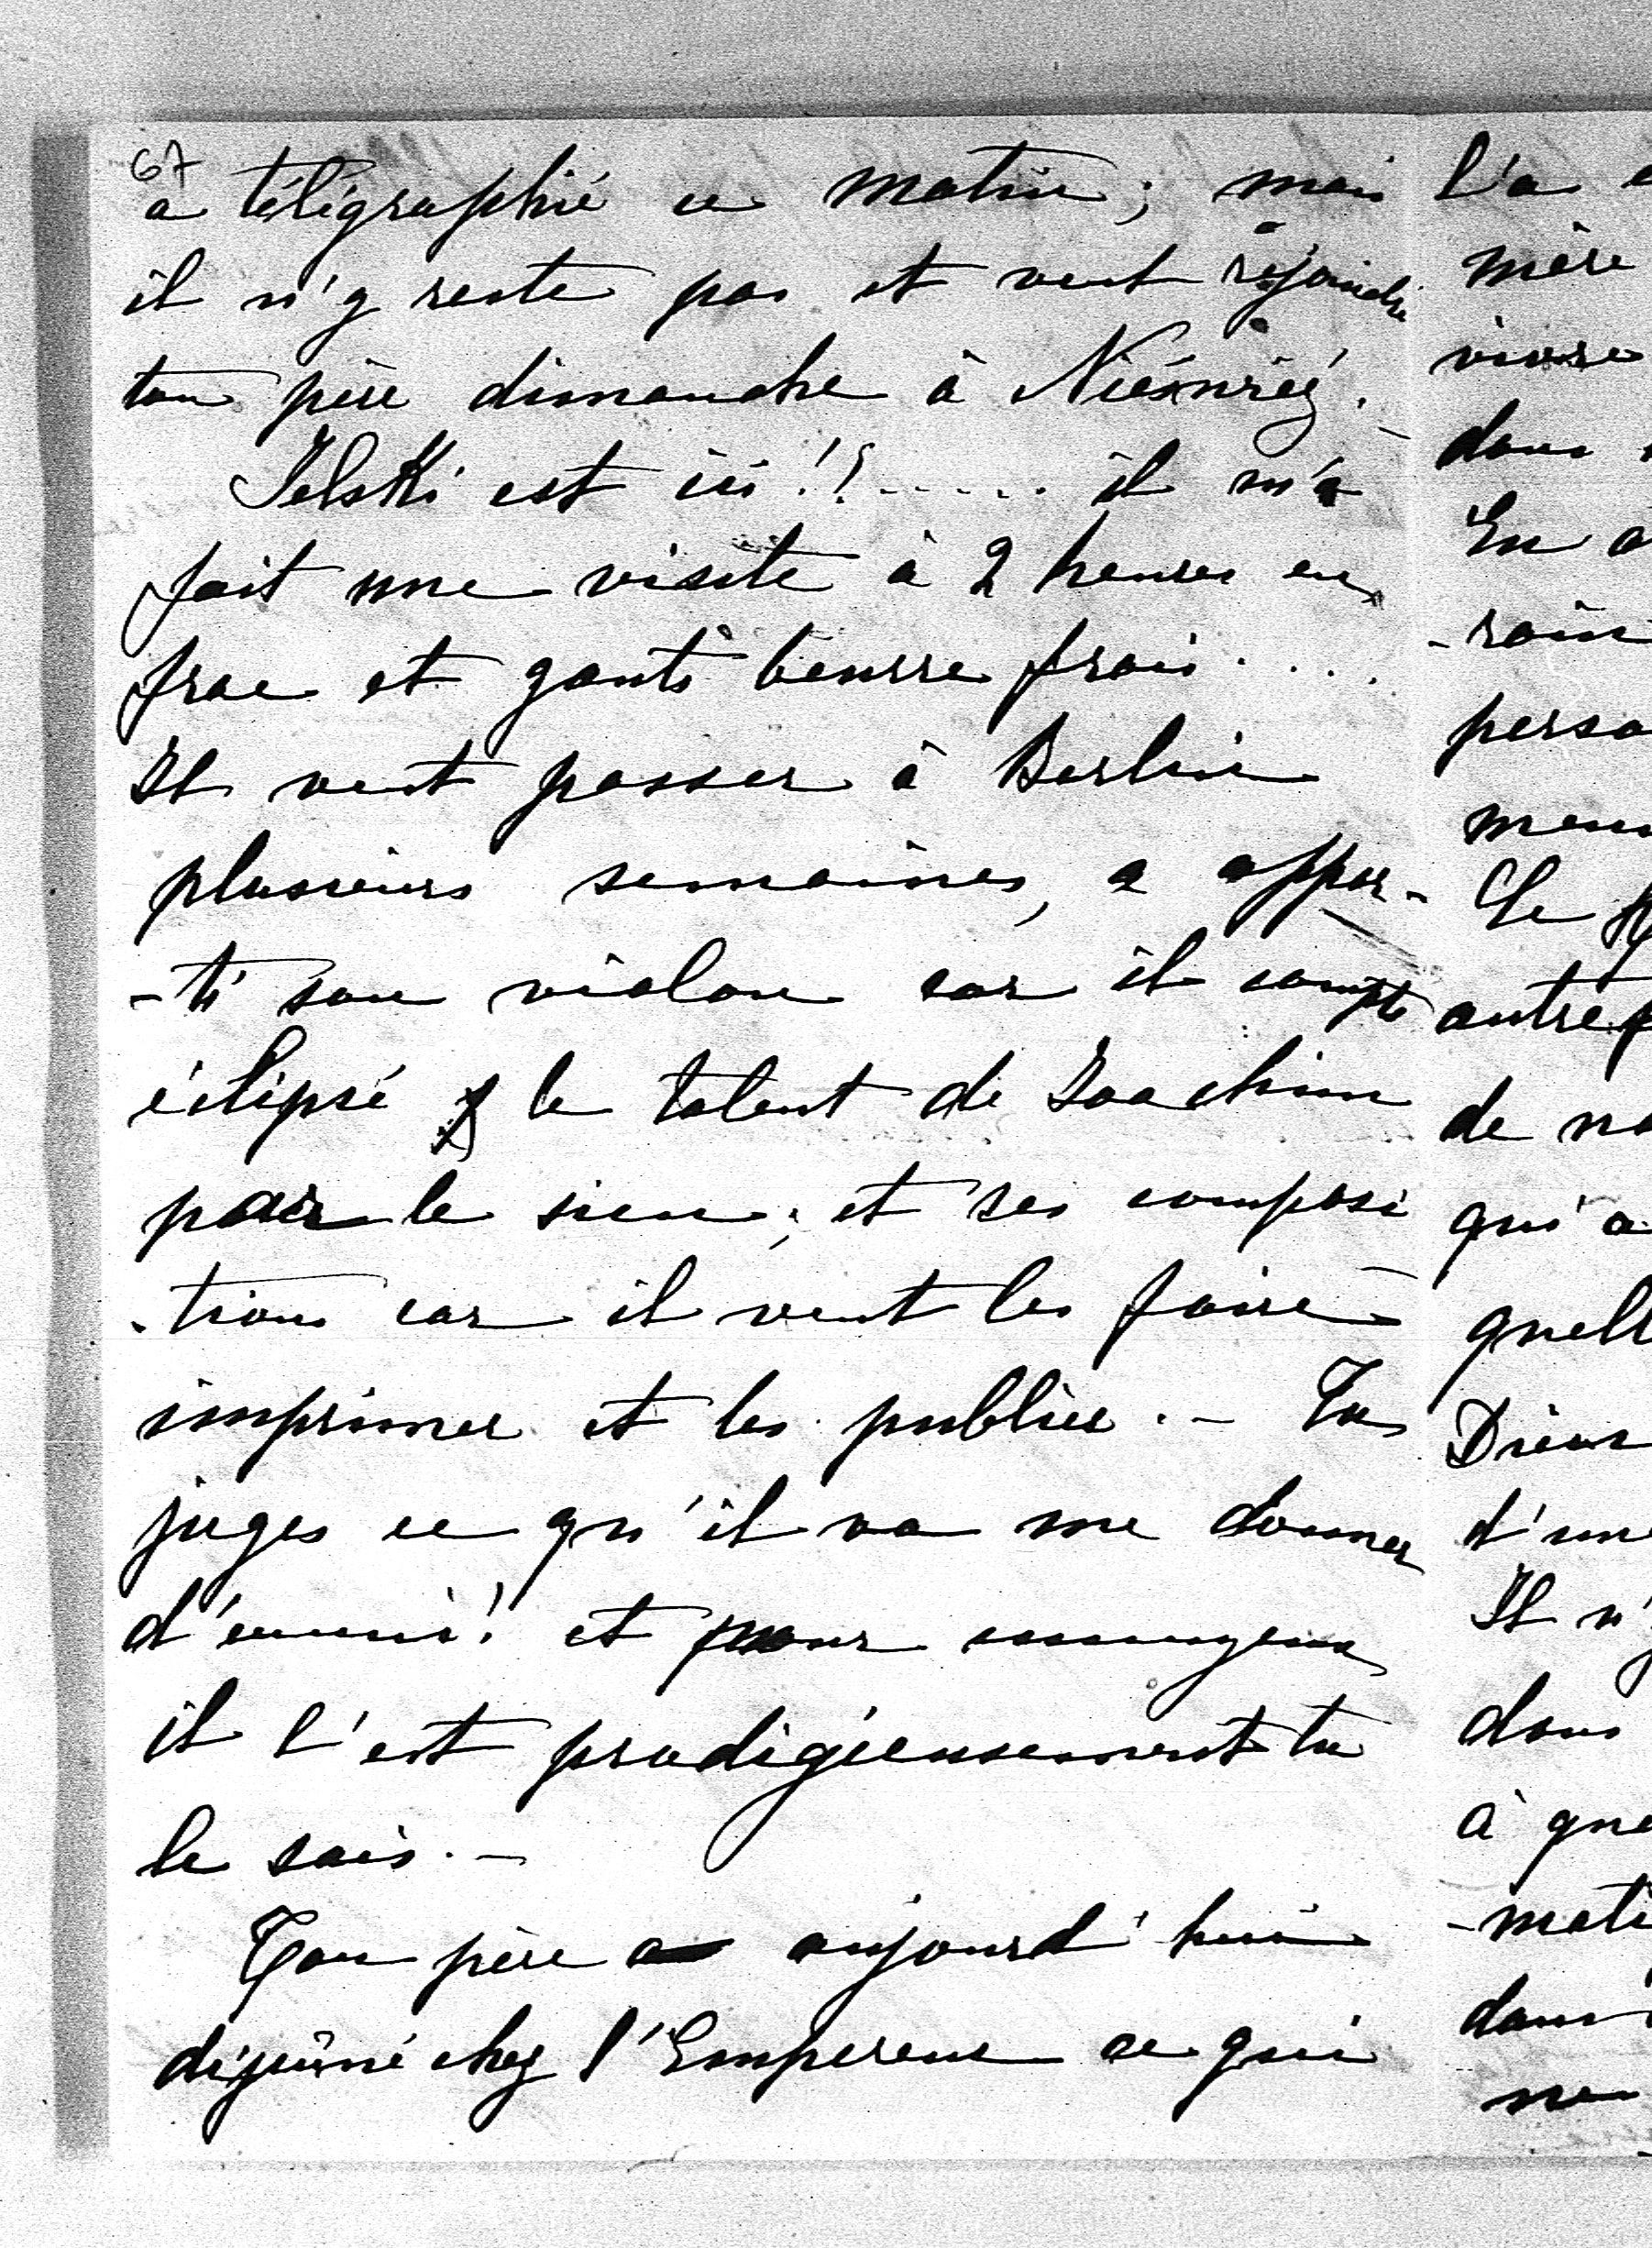 67
a télégraphié ce matin; mais
il n'y reste pas et veut rejoindre
ton père dimanche à
Jelski est ici!!...... il m'a
fait une visite à 2 heures en
frac et gants beurre frais...
Il veut passer à Berlin
plusieurs semaines, a appor-
-té son violon car il compte
éclipsé le talent de Joachim
par le sien; et ses composi
-tions car il veut les faire
imprimer et les publier.- Tu
juges ce qu'il va me donner
d'ennui! et pour ennuyeux
il l'est prodigieusement tu
le sais.-
Ton père a aujourd'hui
déjeûné chez l'Empereur ce qui
l'a
mère
vivre
dans
En
-rain
perso
Le
autre
de
qui a
quell
Dieu
d'un
Il n'
dans
à que
-mati
dans